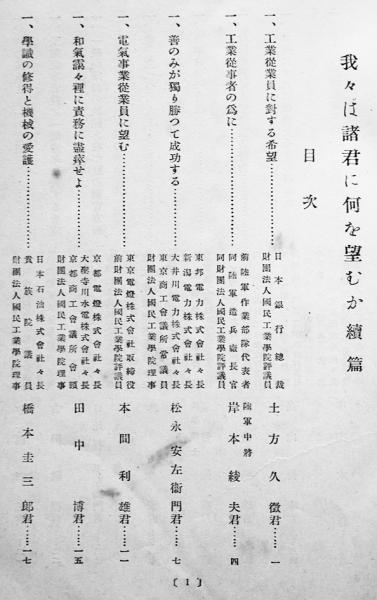 我々は諸君に何を望むか續篇
目次
一、工業從業員に對する希望…………
日本銀行總裁
財團法人國民工業學院評議員
土方久徴君……一
一、工業從事者の爲に…………
前陸軍作業部隊代表者
同陸軍造兵廠長官
同財團法人國民工業學院評議員
陸軍中將
岸本綾夫君……四
一、善のみが獨り勝つて成功する…………
東邦電力株式會社々長
新潟電力株式會社々長
大井川電力株式會社々長
東京商工會議所常議員
財團法人國民工業學院評議員
松永安左衞門君……七
一、電氣事業從業員に望む…………
東京電燈株式會社取締役
前財團法人國民工業學院評議員
本間利雄君……一一
一、和氣靄々裡に責務に盡瘁せよ…………
京都電燈株式會社々長
大聖寺川水電株式會社々長
京都商工會議所會頭
財團法人國民工業學院理事
田中博君……一五
一、學識の修得と機械の愛護…………
日本石油株式會社々長
貴族院議員
財團法人國民工業學院理事
橋本圭三郎君……一七
〔1〕